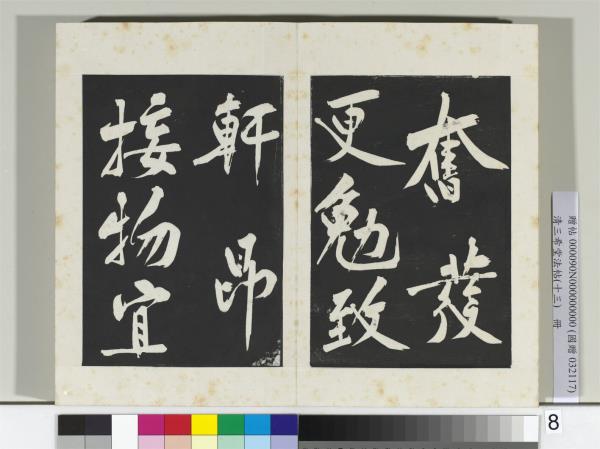 奮發
更勉致
軒昂
接物宜
贈帖 000090N000000000 (國贈 032117)
清三希堂法帖(十三) 冊
8